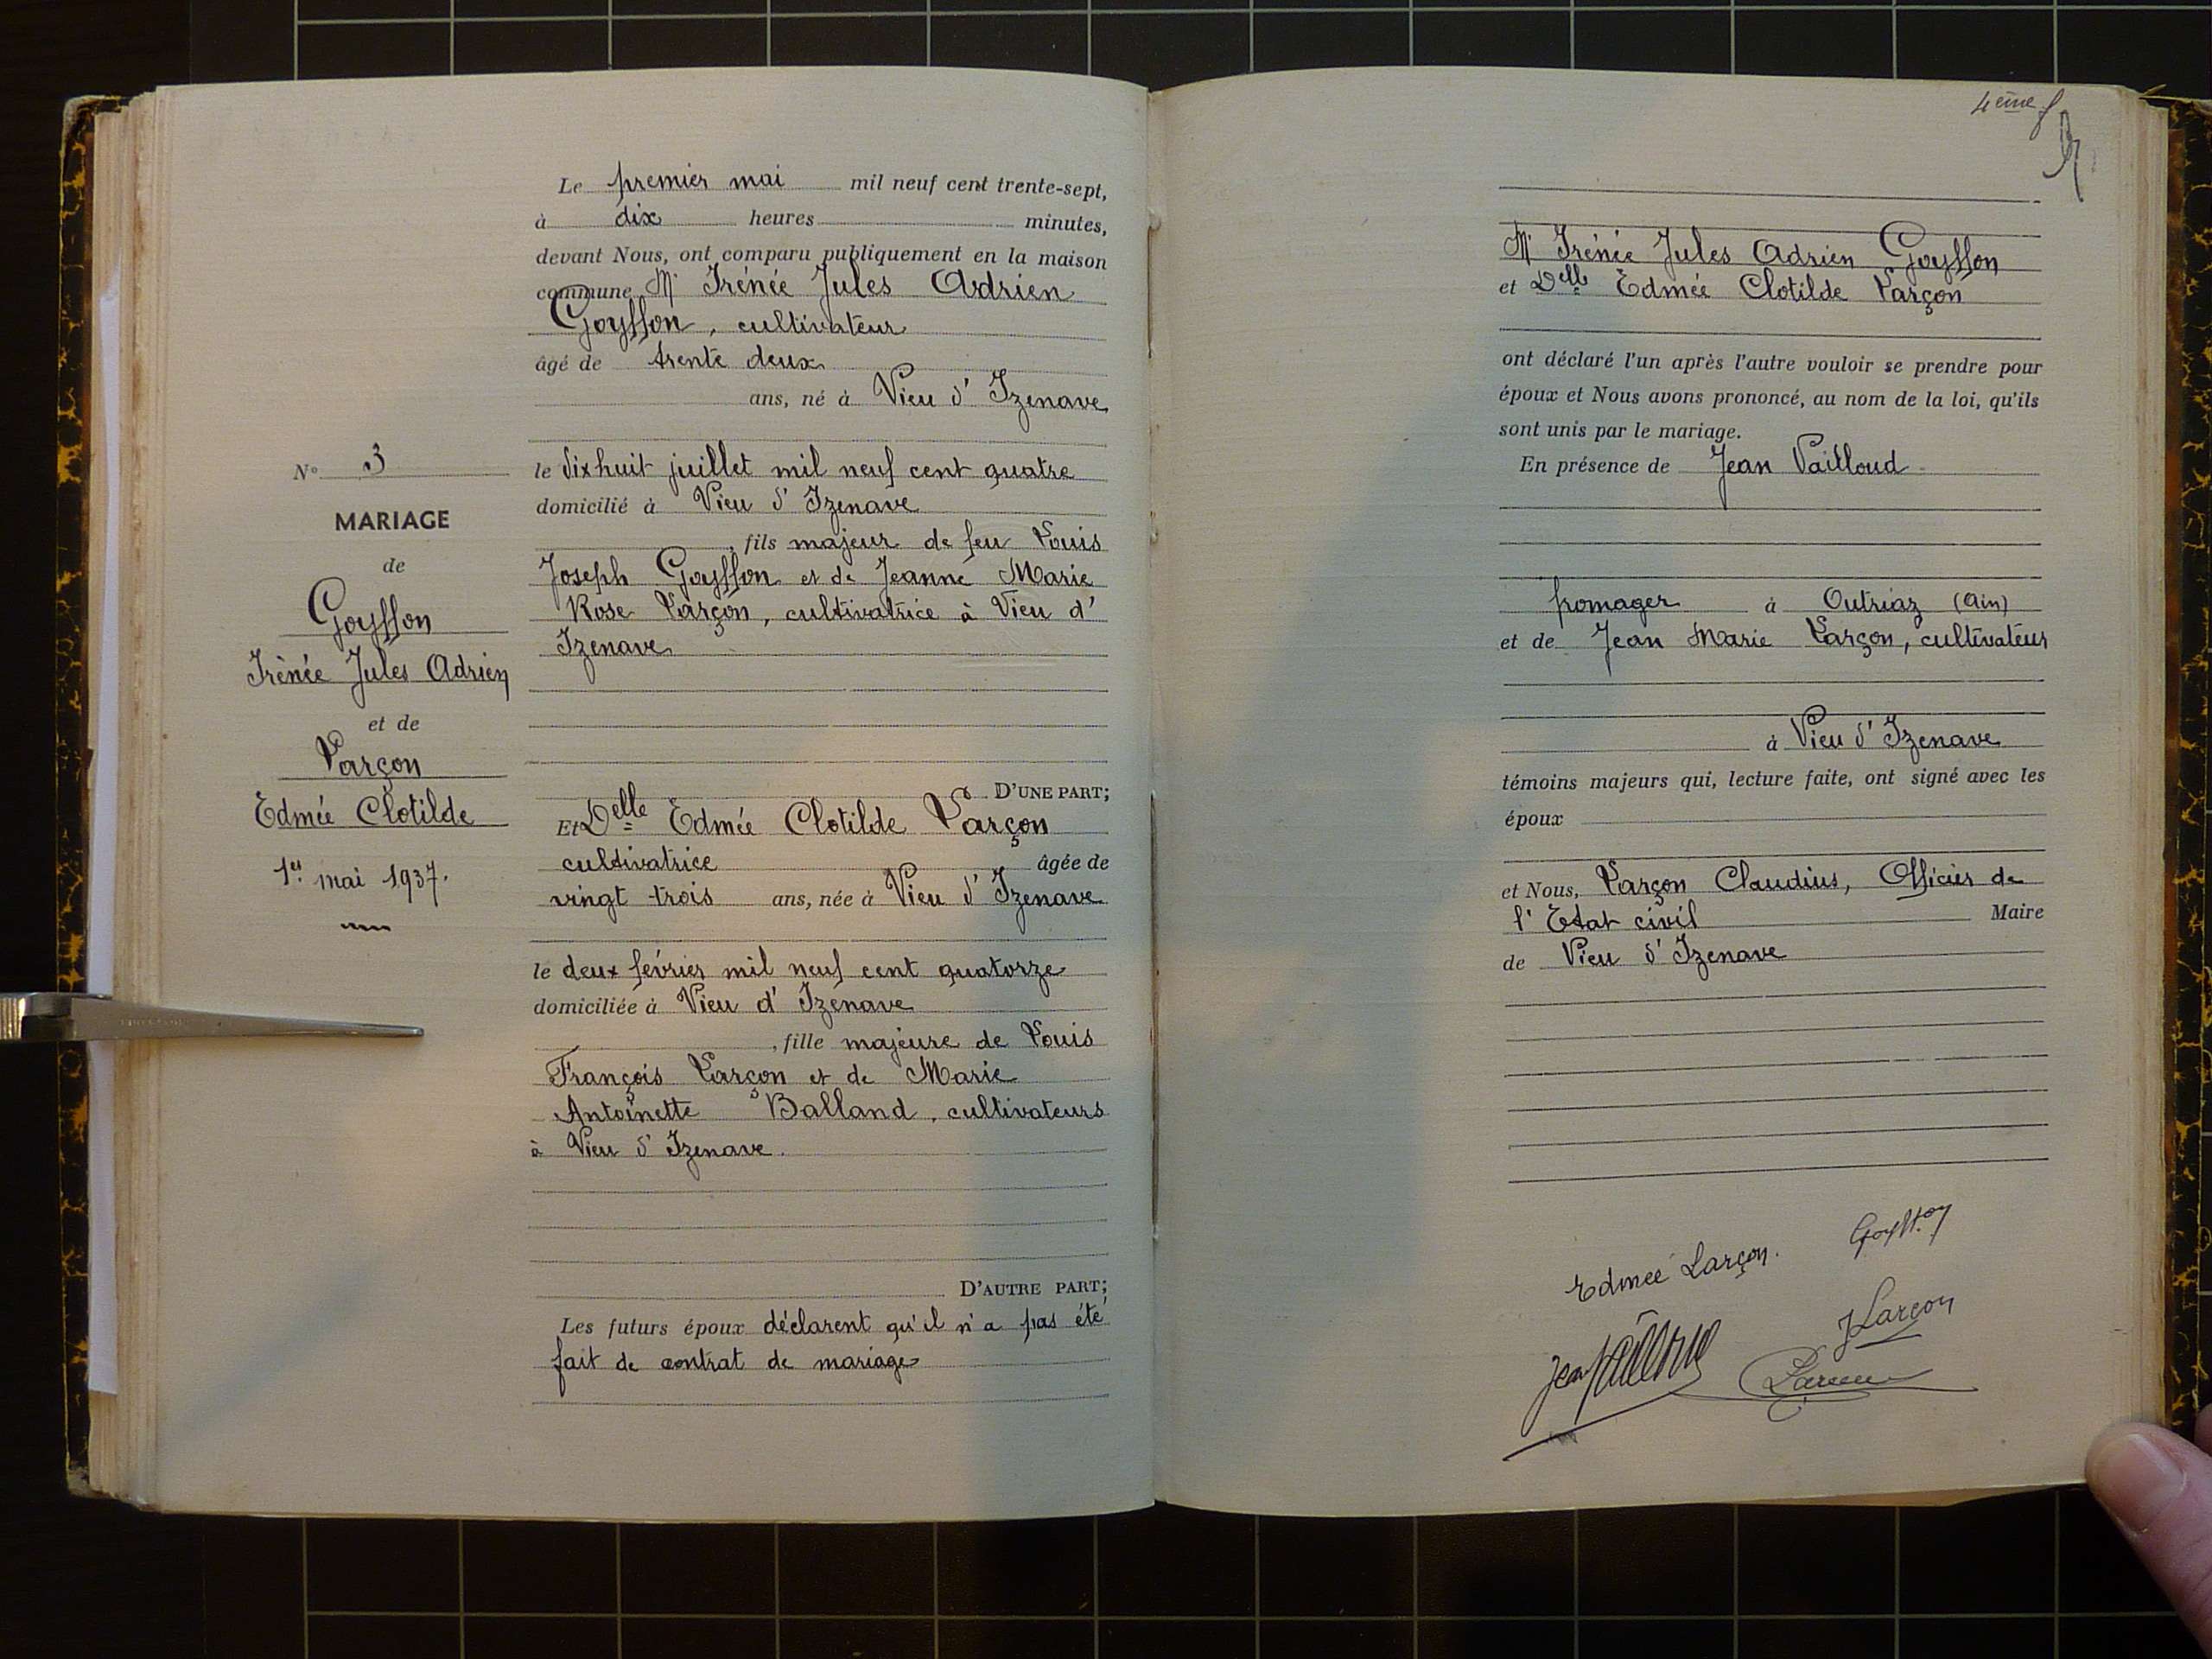 Le premier mai mil neuf cent trente-sept,
à dix heures minutes,
devant Nous, ont comparu publiquement en la maison
commune Mr Irénée Jules Adrien
Goyffon, cultivateur
âgé de trente deux
ans, né à Vieu d' Izenave
le dix huit juillet mil neuf cent quatre
domicilié à Vieu d' Izenave
, fils majeur de feu Louis
Joseph Goyffon et de Jeanne Marie
Rose Larçon, cultivatrice à Vieu d'
Izenave
D'UNE PART;
Et Delle Edmée Clotilde Larçon
cultivatrice âgée de
vingt trois ans, née à Vieu d' Izenave
le deux février mil neuf cent quatorze
domiciliée à Vieu d' Izenave
, fille majeure de Louis
François Larçon et de Marie
Antoinette Balland, cultivateurs
à Vieu d' Izenave.
D'AUTRE PART;
Les futurs époux déclarent qu'il n'a pas été
fait de contrat de mariage
N° 3
MARIAGE
de
Goyffon
Irénée Jules Adrien
et de
Larçon
Edmée Clotilde
1er mai 1937.
4ème f
Mr Irénée Jules Adrien Goyffon
et Delle Edmée Clotilde Larçon
ont déclaré l'un après l'autre vouloir se prendre pour
époux et Nous avons prononcé, au nom de la loi, qu'ils
sont unis par le mariage.
En présence de Jean Vailloud
fromager à Outriaz (Ain)
et de Jean Marie Larçon, cultivateur
à Vieu d' Izenave
témoins majeurs qui, lecture faite, ont signé avec les
époux
et Nous, Larçon Claudius, Officier de
l' Etat civil Maire
de Vieu d' Izenave
Edmée Larçon. Goyffon
J Larçon
Jean Vailloud Larçon